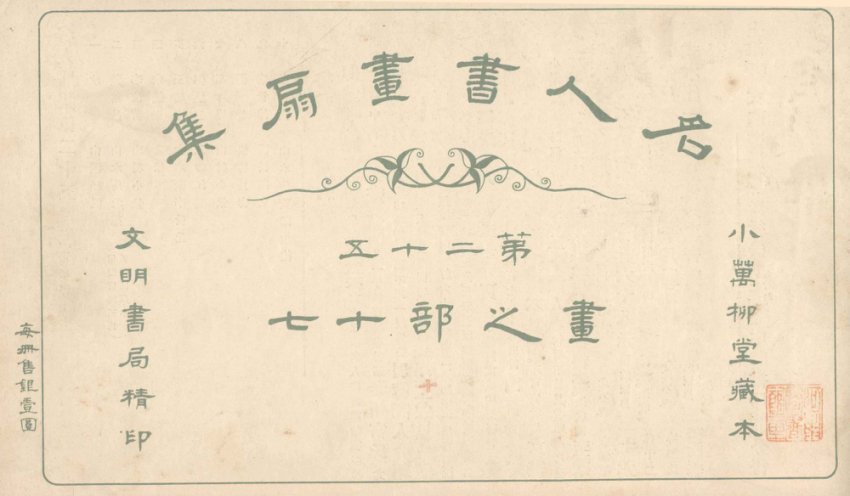 名人書畫扇集
小萬柳堂藏本
第二十五
畫之部十七
文明書局精印
每冊售銀壹圓